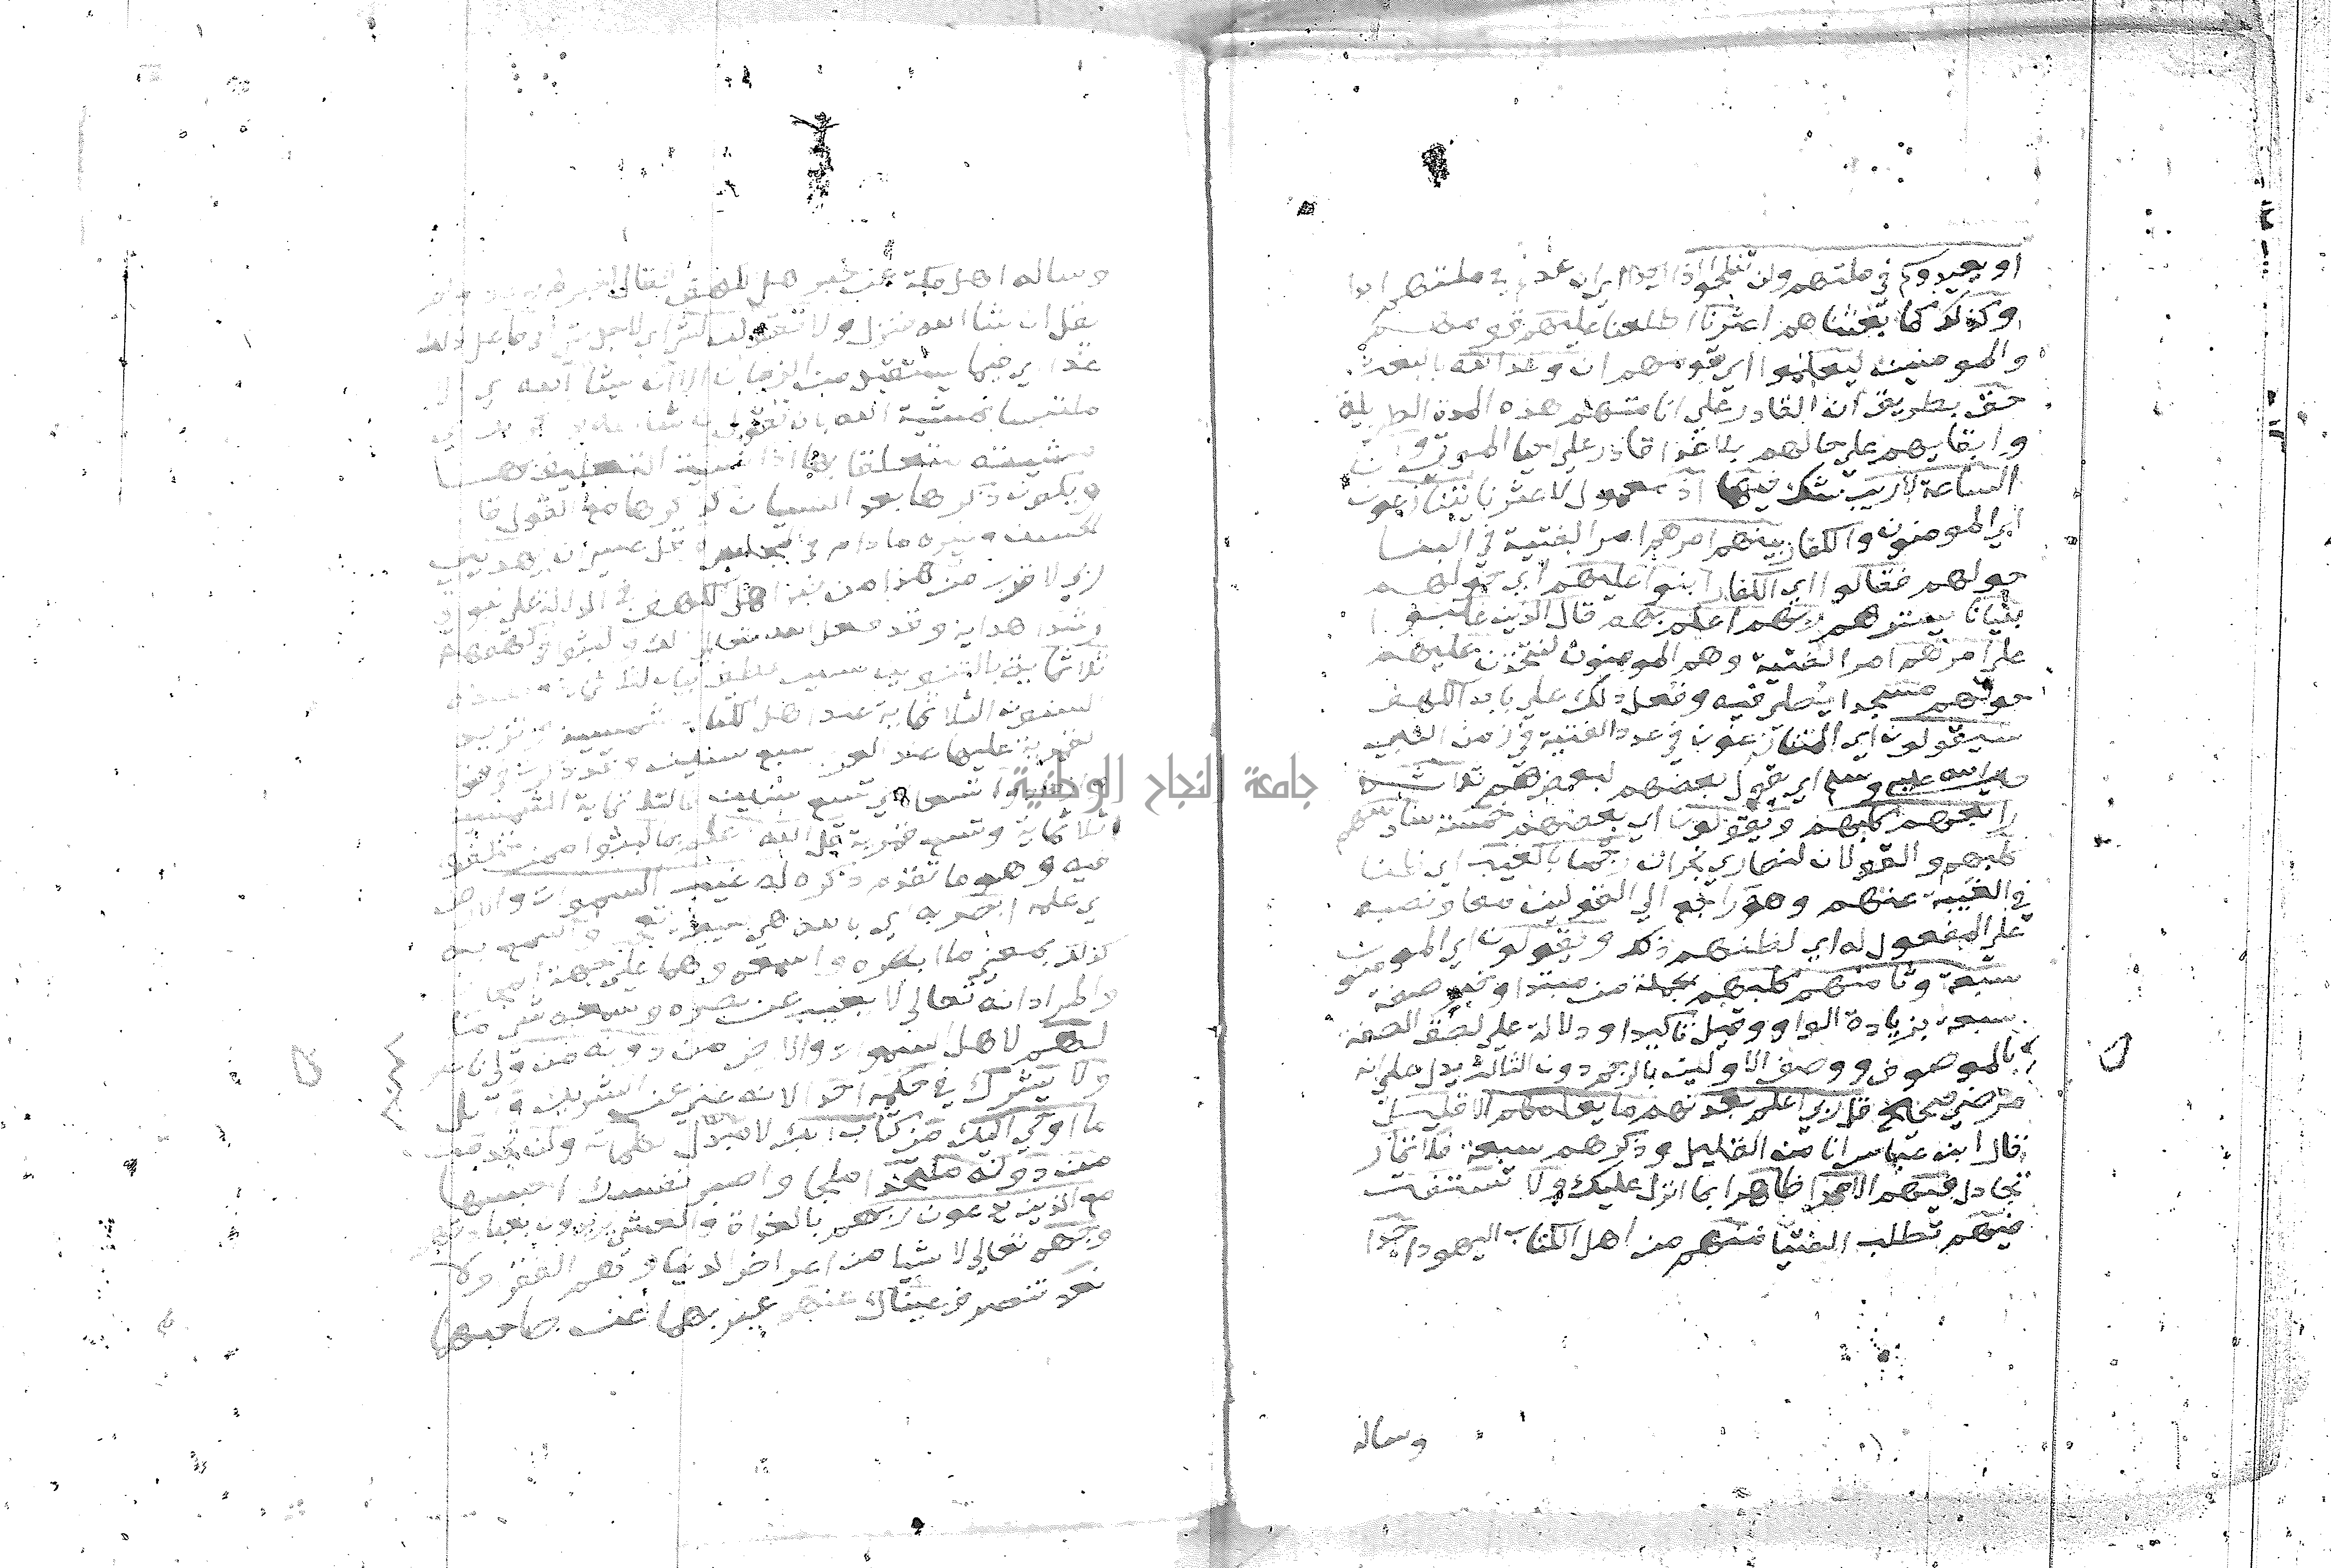 او يعيدوكم في ملتهم ولن تفلحوا اذا اي ان عدتم في ملتهم ابدا
وكذلك كما بعثناهم اعثرنا اطلعنا عليهم قومهم
والمومنين ليعلموا اي قومهم ان وعد الله بالبعث
حق بطريق ان القادر علي انامتهم هذه المدة الطويلة
وابقايهم علي حالهم بلا غذا قادر علي احيا الموتي وان
الساعة لا ريب شك فيها اذ معمول لاعثرنا يتنازعون
اي المومنون والكفار بينهم امرهم امر الفتية في البنا
حولهم فقالوا اي الكفار ابنوا عليهم اي حولهم
بنيانا يسترهم ربهم اعلم بهم قال الذين غلبوا
علي امرهم امر الفتية وهم المومنون لنتخذن عليهم
حولهم مسجدا يصلي فيه وفعل ذلك علي باب الكهف
سيقولون اي المتنازعون في عدد الفتية في زمن النبي
صلي الله عليه وسلم اي يقول بعضهم لبعضهم ثلاثة
رابعهم كلبهم ويقولون اي بعضهم خمسة سادسهم
كلبهم والقولان لنصاري نجران رجما بالغيب اي ظنا
في الغيبة عنهم وهو راجع الي القولين معا ونصبه
علي المفعول له اي لظنهم ذلك ويقولون اي المومنون
سبعة وثامنهم كلبهم جملة من مبتدا وخبر صفة
سبعة بزيادة الواو وقيل تاكيدا ودلالة علي لصق الصفة
بالموصوف ووصف الاولين بالرجم دون الثالث يدل علي انه
مرضي صحيح قل ربي اعلم بعدتهم ما يعلمهم الا قليل
قال ابن عباس انا من القليل وذكرهم سبعة فلا تمار
تجادل فيهم الا مرا ظاهرا بما انزل عليك ولا تستفت
فيهم تطلب الفتيا منهم من اهل الكتاب اليهود احدا
وساله
وساله اهل مكة عن خبر اهل الكهف فقال اخبركم به غدا ولم
يقل ان شا الله فنزل ولا تقولن لشي اي لاجل شي اني فاعل ذلك
غدا اي فيما يستقبل من الزمان الا ان يشا الله اي الا
ملتبسا بمشية الله بان تقول ان شا الله واذكر ربك اي
مشيته متعلقا بها اذا نسيت التعليق بها
ويكون ذكرها بعد النسيان كذكرها مع القول قال
الحسن وغيره ما دام في المجلس وقل عسي ان يهدين
ربي لاقرب من هذا من خبر اهل الكهف في الدلالة علي نبوتي
رشدا هداية وقد فعل الله تعالي ذلك ولبثوا في كهفهم
ثلاثماية بالتنوين سنين عطف بيان لثلاثماية وهذه
السنون الثلاثماية عند اهل الكتاب شمسية وتزيد
القمرية عليها عند العرب تسع سنين وقد ذكرت في قوله
وازدادوا تسعا اي تسع سنين فالثلاثماية الشمسية
ثلاثماية وتسع قمرية قل الله اعلم بما لبثوا ممن اختلفوا
فيه وهو ما تقدم ذكره له غيب السموات والارض
اي علمه ابصر به اي بالله هي صيغة تعجب واسمع به
كذلك بمعني ما ابصره وما اسمعه وهما علي جهة المجاز
والمراد انه تعالي لا يغيب عن بصره وسمعه شي ما
لهم لاهل السموات والارض من دونه من ولي ناصر
ولا يشرك في حكمه احدا لانه غني عن الشريك واتل
ما اوحي اليك من كتاب ربك لا مبدل لكلماته ولن تجد من
من دونه ملتحدا ملجا واصبر نفسك احبسها
مع الذين يدعون ربهم بالغداة والعشي يريدون بعبادتهم
وجهه تعالي لا شيا من اعراض الدنيا وهم الفقرا ولا
تعد تنصرف عيناك عنهم عبر بهما عن صاحبهما
جامعة النجاح الوطنية